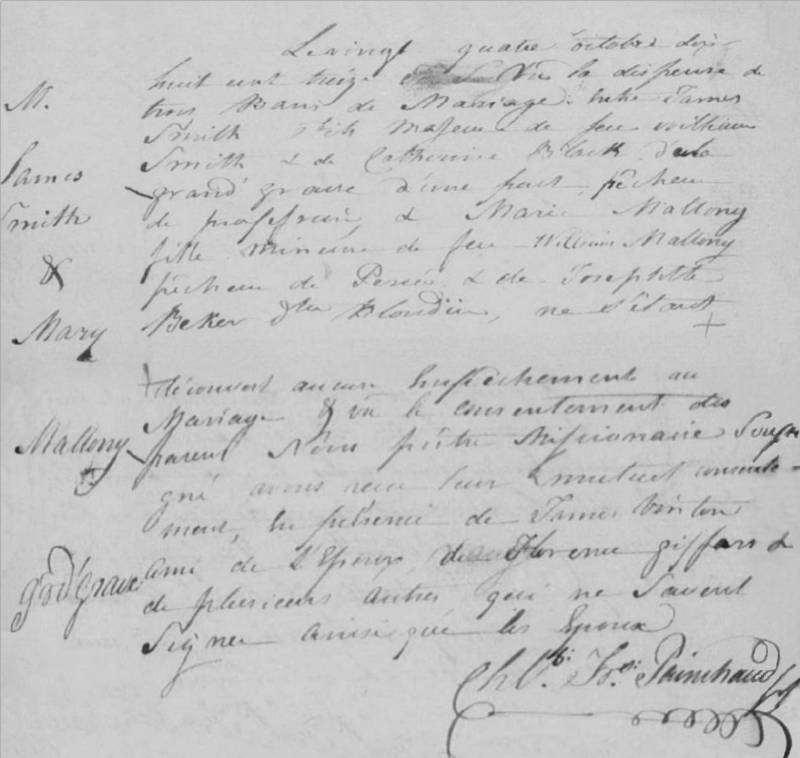 Le vingt quatre octobre dix-
huit cent treize Vu la dispense de
M.
trois Bans de Mariage entre James
Smith fils majeur de feu William
James
Smith & de Catherine Black de la
grand grave d'une part, pêcheur
Smith
de profession, & Marie Mallony
fille mineure de feu William Mallony
&
pêcheur de Percée & de Josephte
Mary
Beker Blondin, ne s'étant +
+ découvert aucun Empêchement au
Mariage & vu le consentement des
Mallony
parens Nous prêtre Missionaire Sousi
gné avons reçu leur mutuel consente-
ment, en présence de James Vinton
grd. grave
ami de l'Epoux, de Florence giffard &
de plusieurs autres qui ne savent
Signer ainsi que les Epoux
Chls. Frs. Painchaud